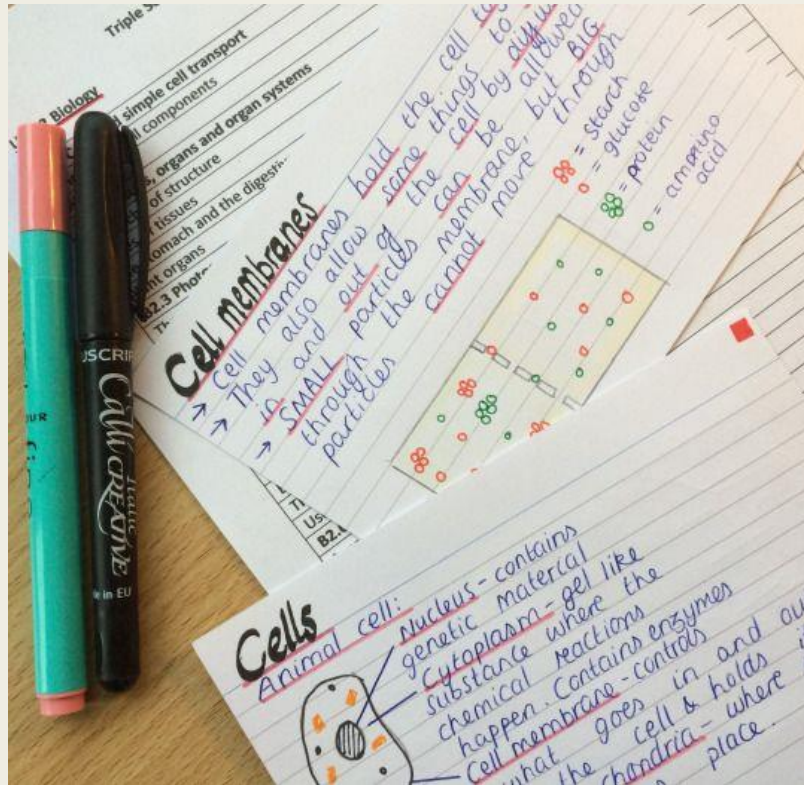 Triple
Biology
simple cell transport
components
organs and organ systems
of structure
tissues
and the
organs
B2.3
Cell membranes
→ Cell membranes hold the cell
→ They also allow some things to
in and out of the cell by
→ SMALL particles can be allowed
through the membrane, but BIG
particles cannot move through
= starch
= glucose
= protein
= amino
acid
B2.
Cells
Animal cell:
Nucleus - contains
genetic material
Cytoplasm - gel like
substance where the
chemical reactions
happen. Contains enzymes
Cell membrane - controls
what goes in and
the cell & holds
where
place.
CREATIVE
in EU